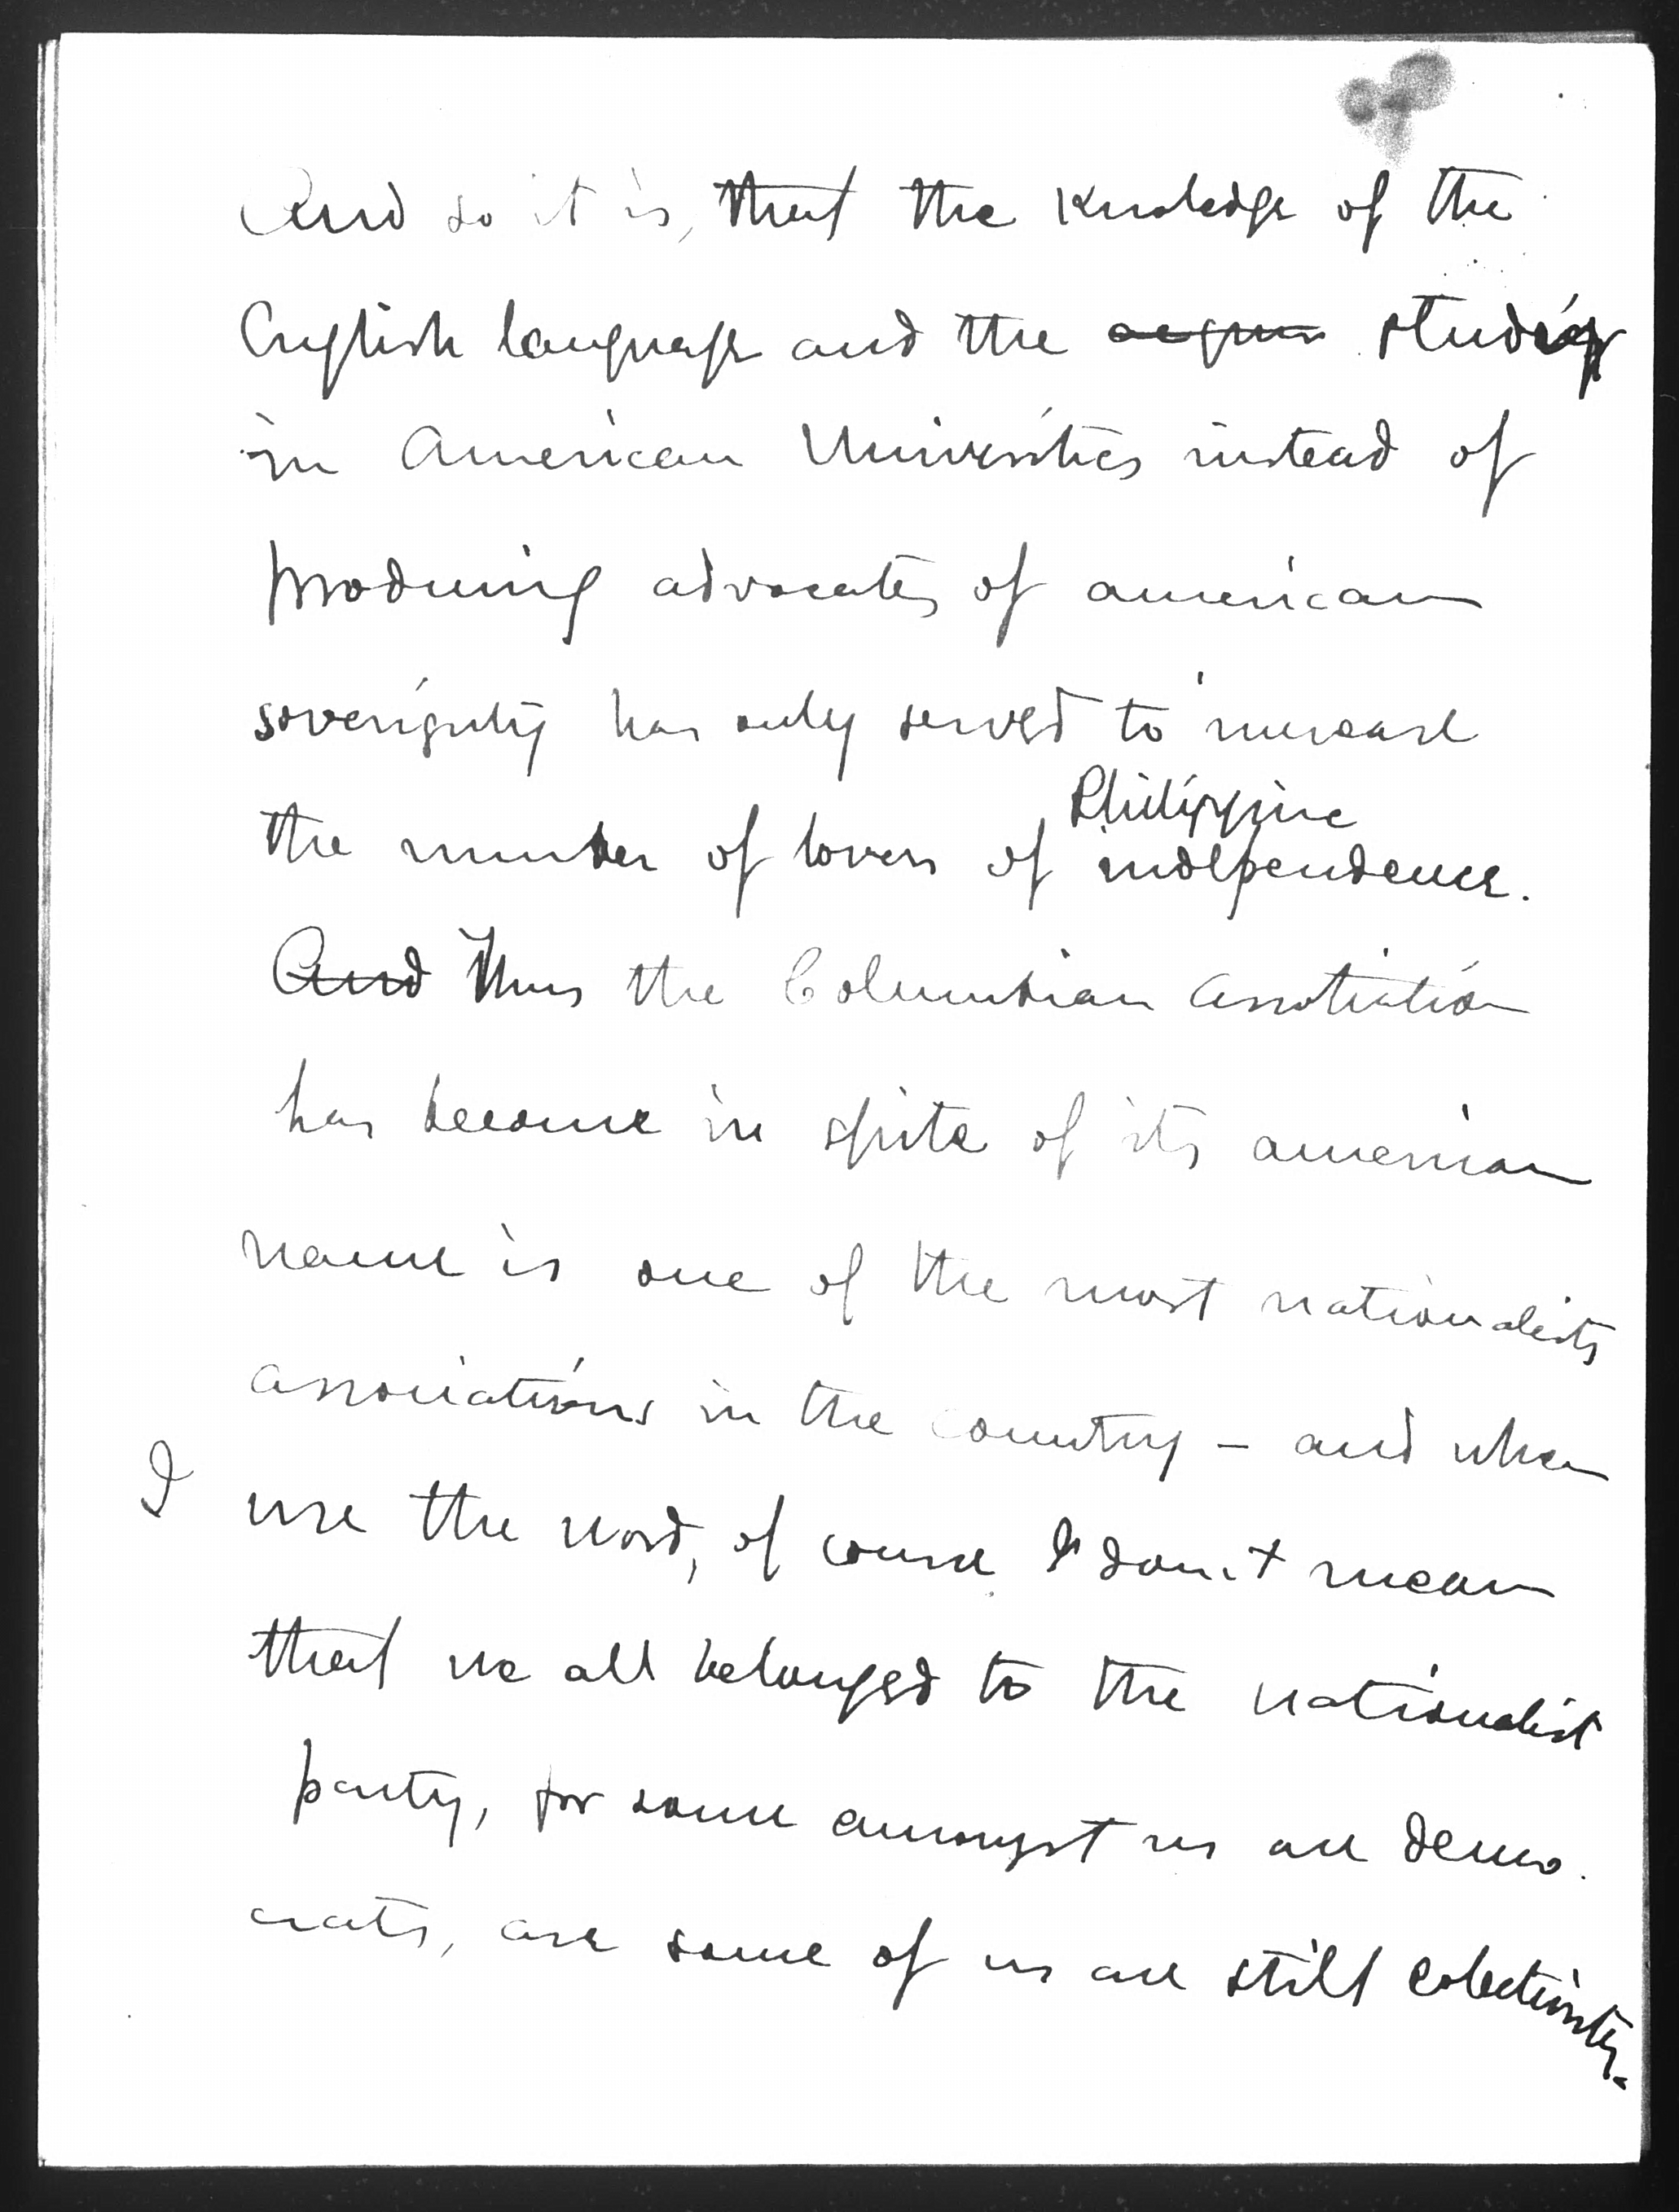 And so it is, that the Knoledge of the
English language and the studies
in American Universities instead of
producing advocates of american
soverignty has only served to increase
Philippine
the number of lovers of independence.
And Thus the Columbian Assotiation
has become in spite of its american
name is one of the most nationalists
associations in the country - and when
I use the word, of course I don't mean
that we all belonged to the nationalist
party, for some amongst us are demo.
crats, are some of us are still colectivists.